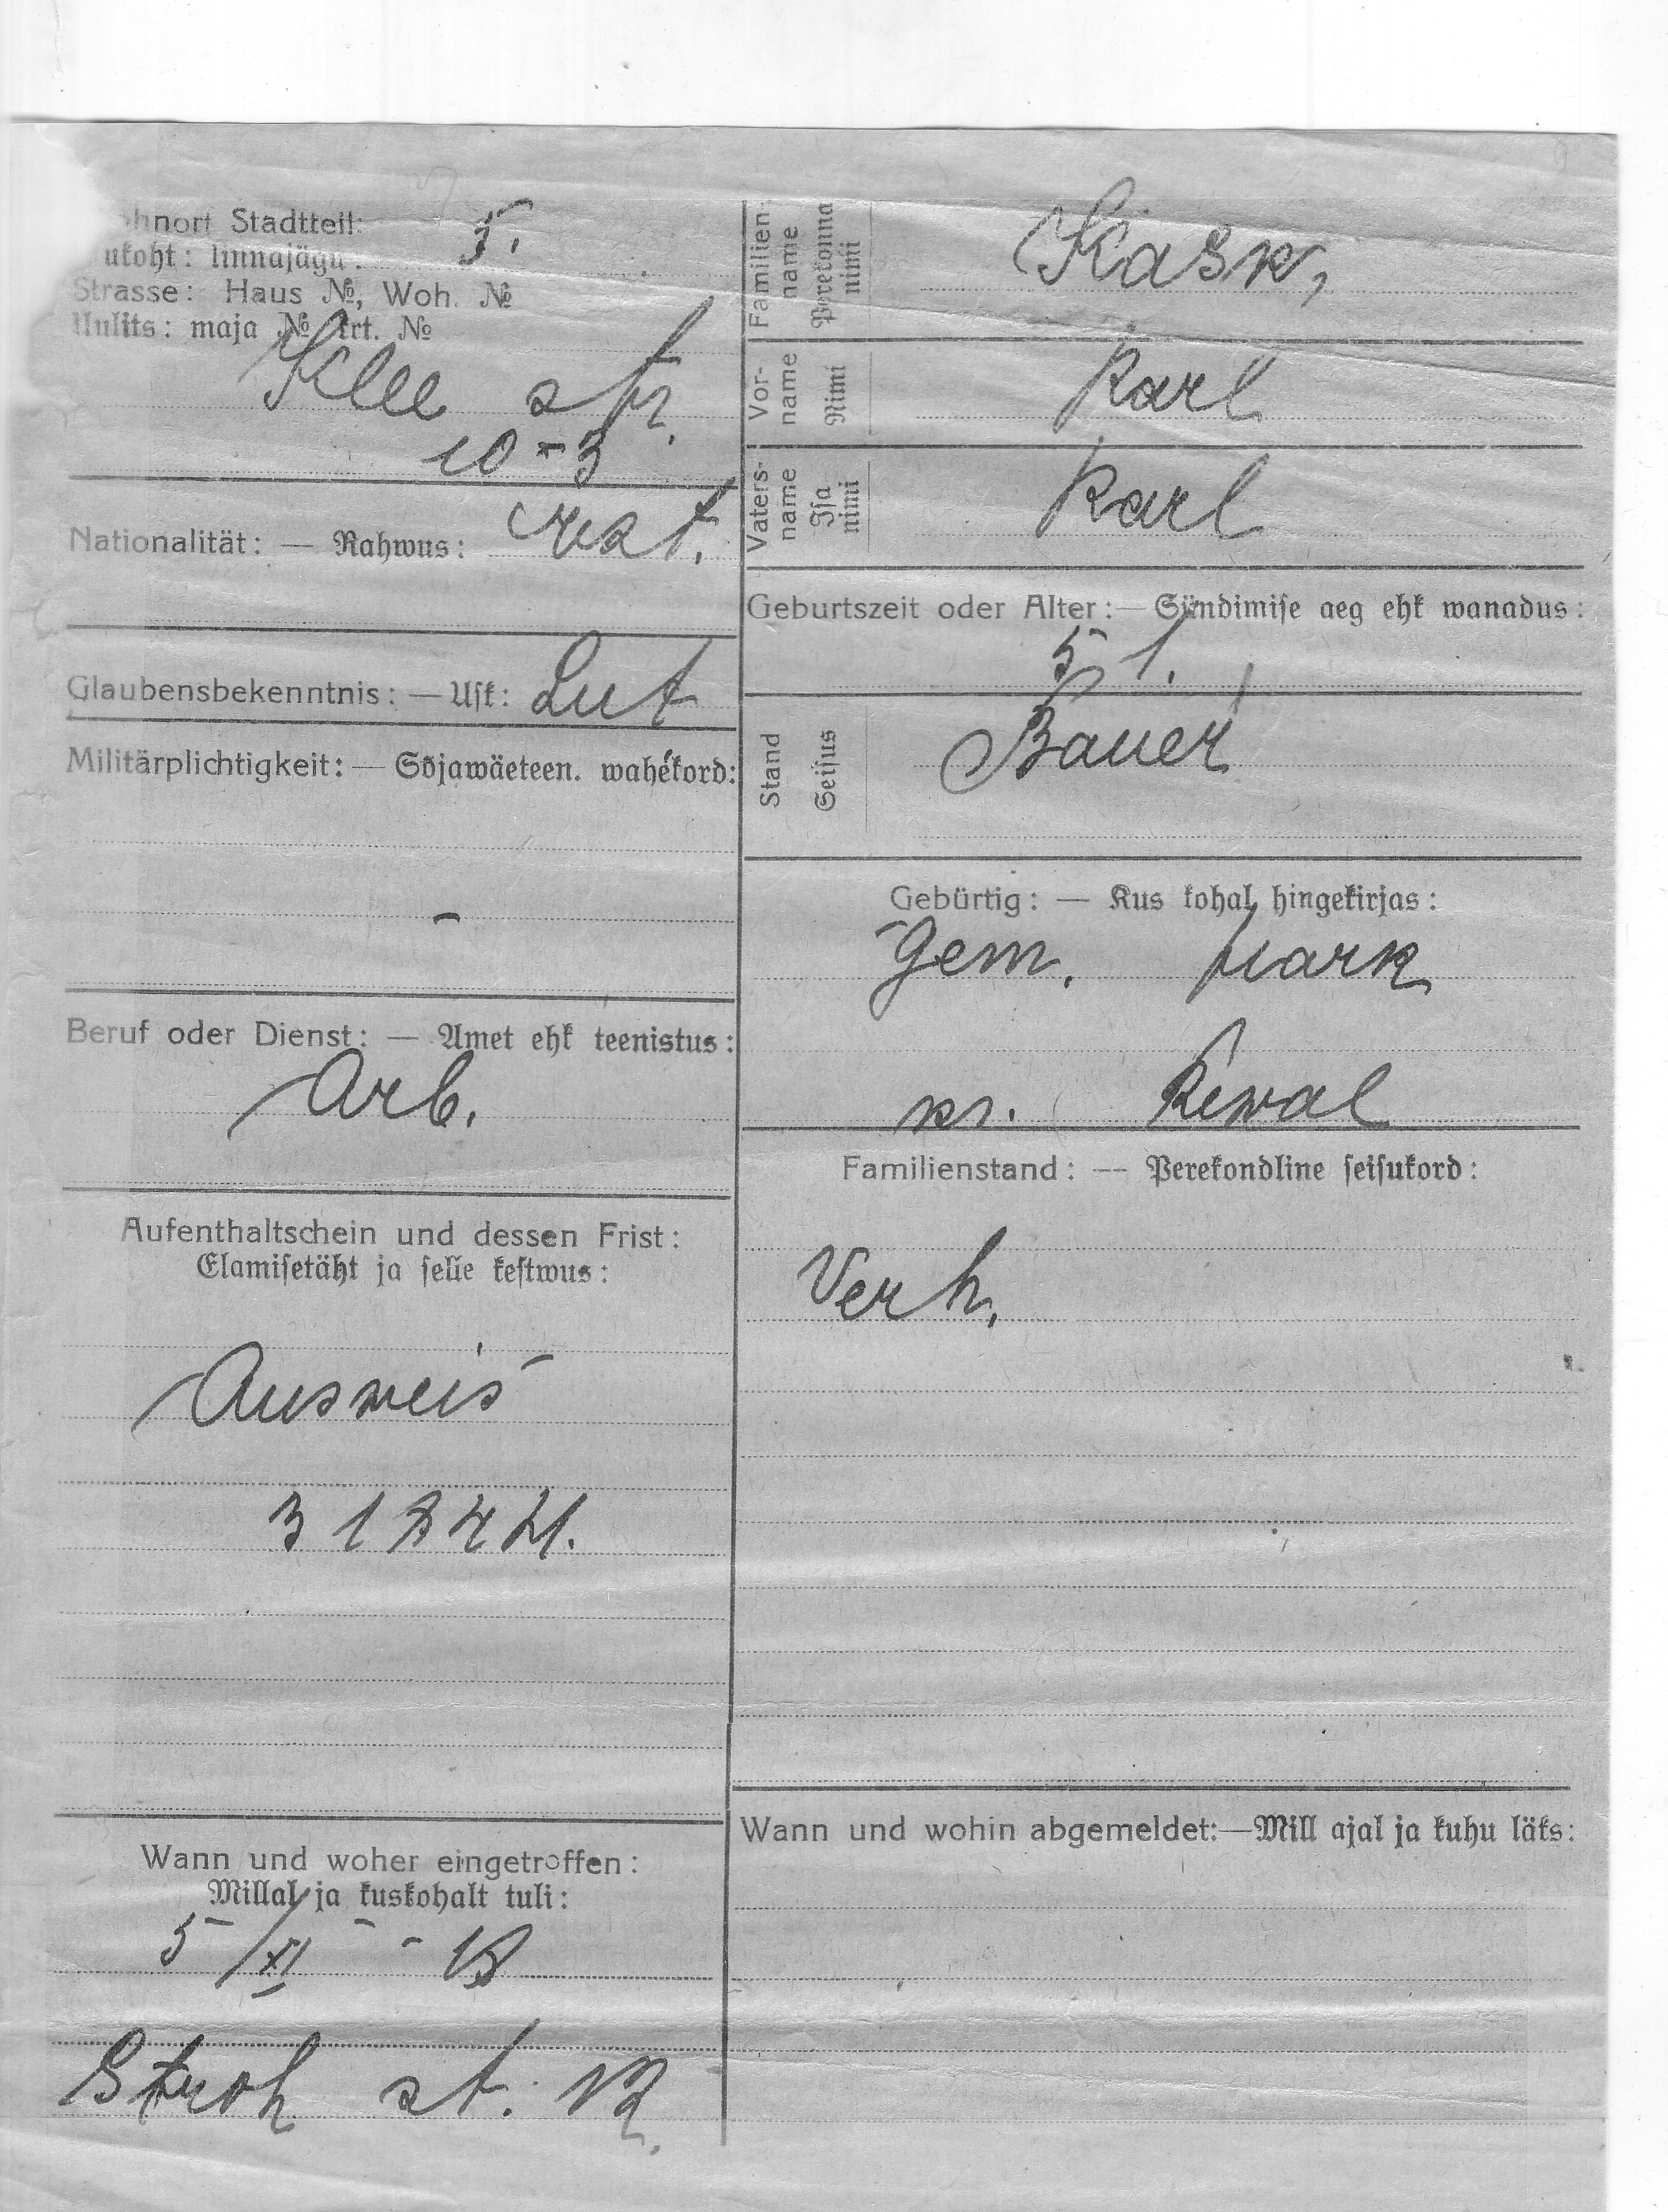 hnort Stadtteil: 5.
ukoht: linnajagu:
Strasse: Haus №, Woh. №
Uulits: maja № krt. №
Klee str.
10-3
Nationalität: — Rahwus: Est.
Glaubensbekenntnis: — Usk: Lut
Militärplichtigkeit: — Sõjawäeteen. wahekord:
-
Beruf oder Dienst: — Amet ehk teenistus:
Arb.
Aufenthaltschein und dessen Frist:
Elamisetäht ja selle kestwus:
Ausweis
Wann und woher eingetroffen:
Millal ja kuskohalt tuli:
5/XI - 18
Stroh st. 12.
Familien-name Perekonna nimi Kask,
Vor-name Nimi Karl
Vaters-name Isa nimi Karl
Geburtszeit oder Alter: — Sündimise aeg ehk wanadus:
51.
Stand Seisus Bauer
Gebürtig: — Kus kohal hingekirjas:
Gem. Hark
kr. Rewal
Familienstand: — Perekondline seisukord:
Verh.
Wann und wohin abgemeldet:—Mill ajal ja kuhu läks: